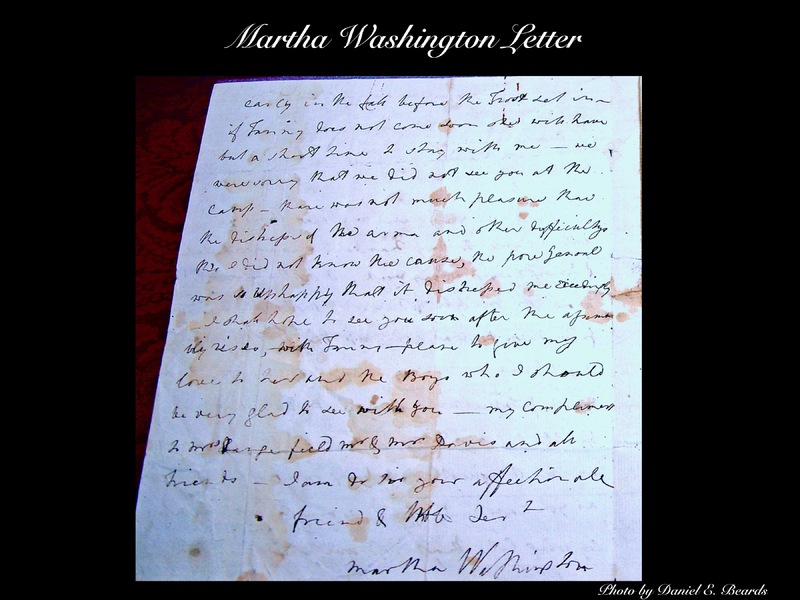 Martha Washington Letter
early in the fall before the Frost set in—
if Fanny does not come soon she will have
but a short time to stay with me — we
were sorry that we did not see you at the
Camp — there was not much pleasure thar
the distress of the army and other difficultys
tho I did not know the cause, the pore General
was so unhappy that it distressed me exceedingly
I shall hope to see you soon after the
with Fanny — please to give my
love to her and the Boys who I should
be very glad to see with you — my compliments
to mrs Dangerfield mr & mrs Davis and all
friends — I am dr sir your affectionate
friend & Hble Sert
Martha Washington
Photo by Daniel E. Beards